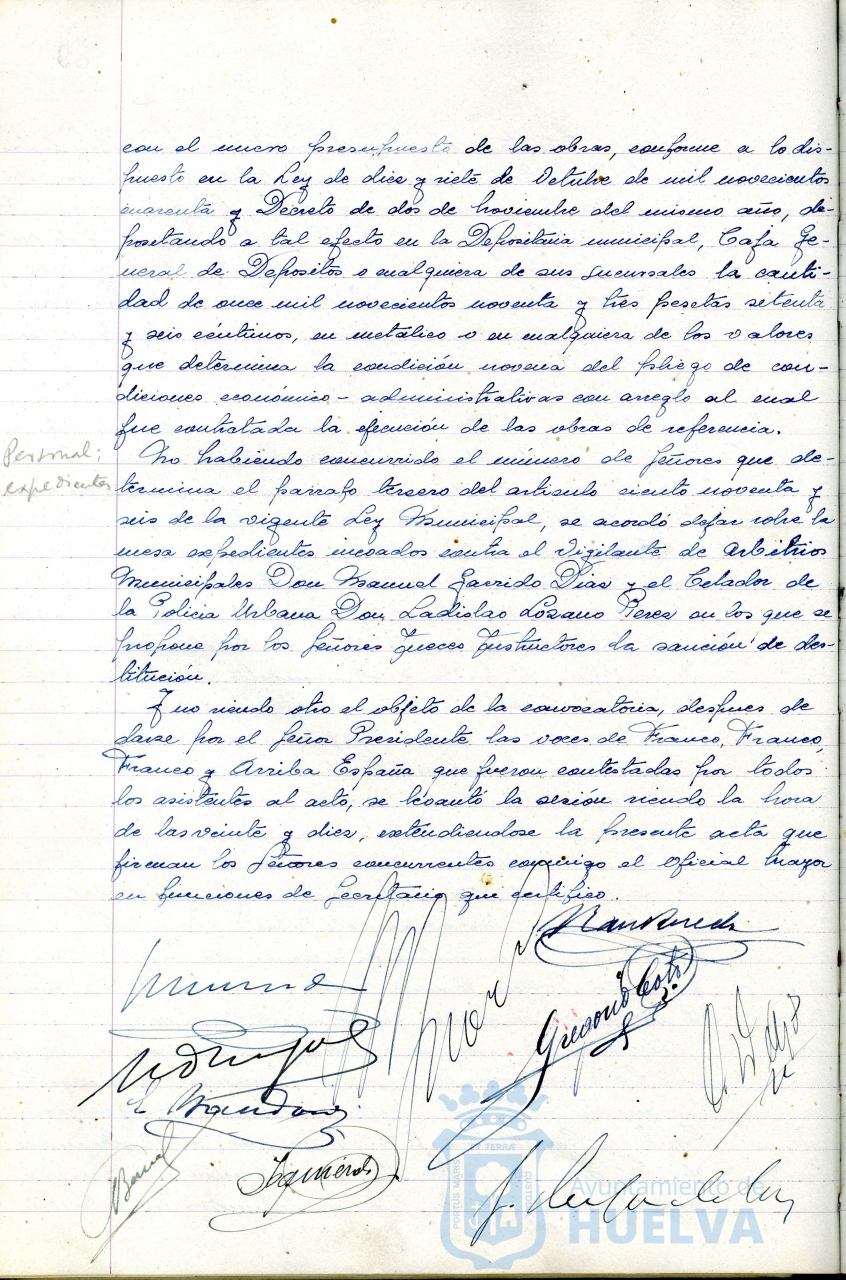 con el nuevo presupuesto de las obras, conforme a lo dis-
puesto en la Ley de diez y siete de Octubre de mil novecientos
cuarenta y Decreto de dos de Noviembre del mismo año, de-
positando a tal efecto en la Depositaria municipal, Caja Ge-
neral de Depositos o cualquiera de sus sucursales la canti-
dad de once mil novecientos noventa y tres pesetas setenta
y seis céntimos, en metálico o en cualquiera de los valores
que determina la condición novena del pliego de con-
diciones económico-administrativas con arreglo al cual
fue contratada la ejecución de las obras de referencia.
Personal;
expedientes
No habiendo concurrido el número de Señores que de-
termina el parrafo tersero del articulo ciento noventa y
seis de la vigente Ley Municipal, se acordó dejar sobre la
mesa expedientes incoados contra el Vigilante de Arbitrios
Municipales Don Manuel Garrido Dias y el Celador de
la Policia Urbana Don Ladislao Lozano Perez en los que se
propone por los Señores Jueces Instructores la sanción de des-
titución.
Y no siendo otro el objeto de la convocatoria, despues de
darse por el Señor Presidente las voces de Franco, Franco,
Franco y Arriba España que fueron contestadas por todos
los asistentes al acto, se levantó la sesión siendo la hora
de las veinte y diez, extendiendose la presente acta que
firman los Señores concurrentes conmigo el Oficial Mayor
en funciones de Secretario que certifico.
Gregorio Coto
Izquierdo
PORTUS MARIS
ET TERRÆ
CUSTODIA
Ayuntamiento de
HUELVA